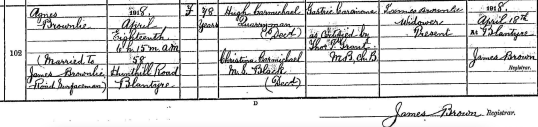 Agnes
Brownlie
(Married to
James Brownlie
Road Surfaceman)
102
1918,
April
Eighteenth
6 h. 15 m. A.M.
58
Hunthill Road
Blantyre
F
78
Years
Hugh Carmichael
Quarryman
(Decd)
Christina Carmichael
M.S. Black
(Decd)
Gastric Carcinoma
as Certified by
Thos. Grant
M.B., Ch.B.
James Brownlie
Widower
Present
1918,
April 18th
At Blantyre
James Brown
Registrar.
D
James Brown Registrar.